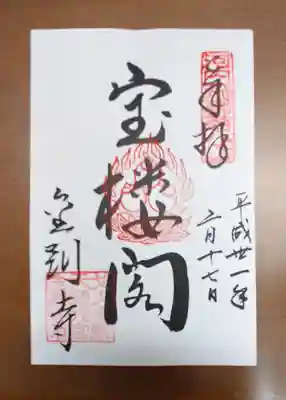 奉拝
平成廿一年
二月十七日
宝楼閣
金剛寺